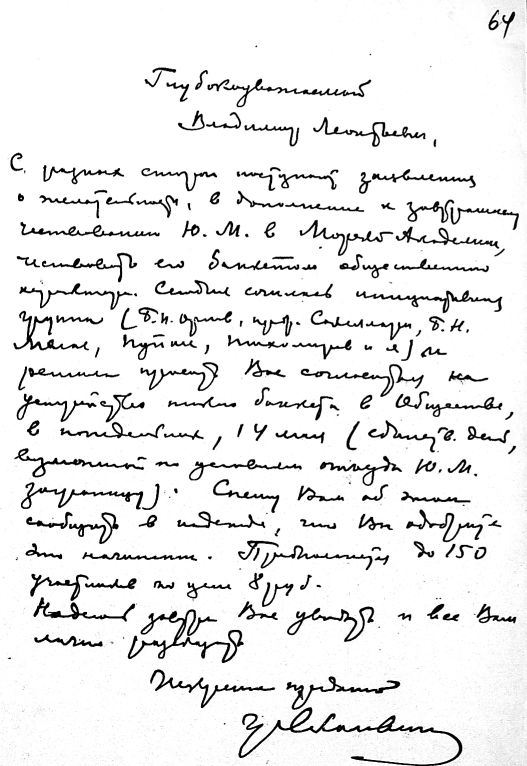 64
Глубокоуважаемый
Владимир Леонтьевич,
С разных сторон поступают заявления
о желательности, в дополнение к завтрашнему
чествованию Ю.М. в Морской Академии,
чествовать его банкетом общественного
характера. Сегодня сошлась инициативная
группа (проф. Б.Н.
и я) и
решила просить Вас согласиться на
устройство такого банкета в Обществе,
в понедельник, 14 мая (единств. день,
возможный по условиям отъезда Ю.М.
заграницу). Спешу Вам об этом
сообщить в надежде, что Вы одобрите
это начинание. Предполагается до 150
участников по цене 8 руб.
Надеюсь завтра Вас увидеть и все Вам
лично рассказать
Искренне преданный